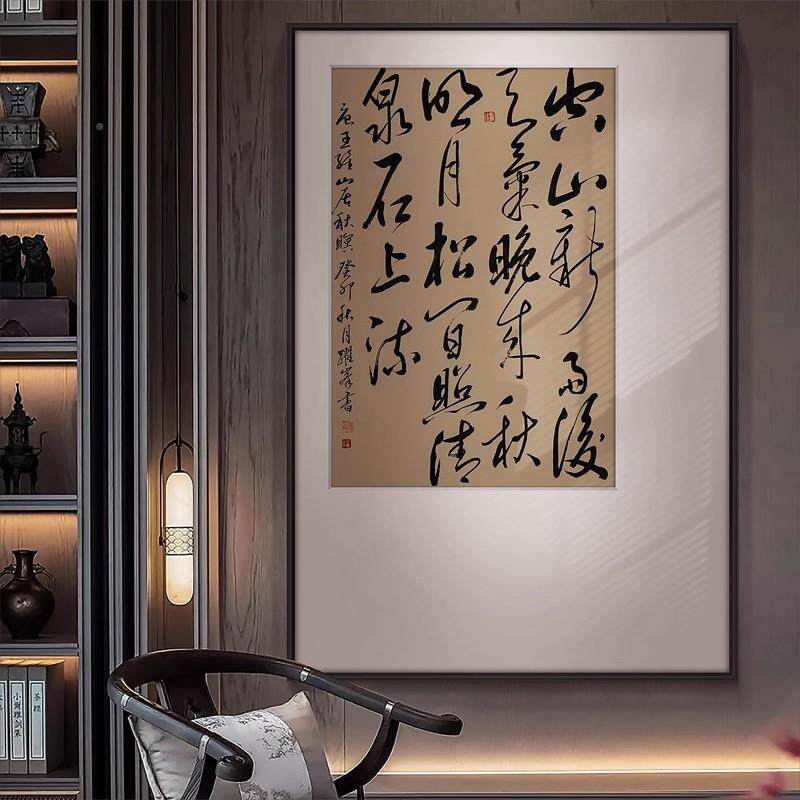 空山新雨後
天氣晚來秋
明月松間照清
泉石上流
唐王維山居秋暝 癸卯秋月躍峯書
茶經